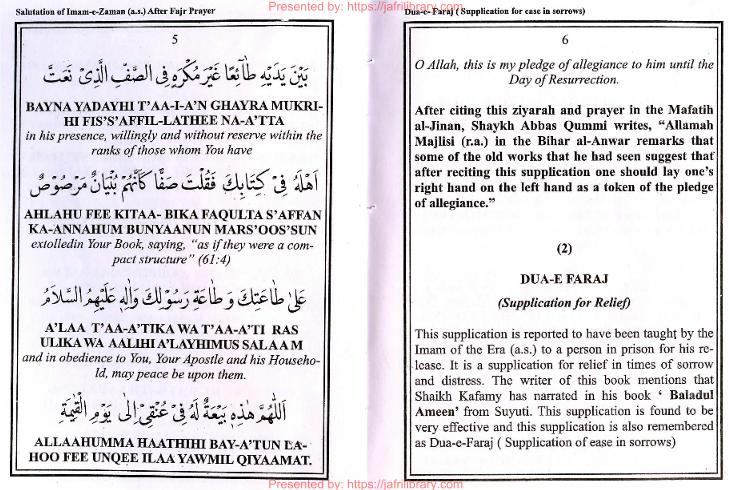 Presented by: https://jafrilibrary.com/
Salutation of Imam-e-Zaman (a.s.) After Fajr Prayer
5
بَيْنَ يَدَيْهِ طَآئِعًا غَيْرَ مُكْرَهٍ فِى الصَّفِّ الَّذِىْ نَعَتَّ
BAYNA YADAYHI T'AA-I-A'N GHAYRA MUKRI-
HI FIS'S'AFFIL-LATHEE NA-A'TTA
in his presence, willingly and without reserve within the
ranks of those whom You have
اَهْلَهٗ فِىْ كِتَابِكَ فَقُلْتَ صَفًّا كَاَنَّهُمْ بُنْيَانٌ مَرْصُوْصٌ
AHLAHU FEE KITAA- BIKA FAQULTA S'AFFAN
KA-ANNAHUM BUNYAANUN MARS'OOS'SUN
extolledin Your Book, saying, "as if they were a com-
pact structure" (61:4)
عَلٰى طَاعَتِكَ وَ طَاعَةِ رَسُوْلِكَ وَاٰلِهٖ عَلَيْهِمُ السَّلَامُ
A'LAA T'AA-A'TIKA WA T'AA-A'TI RAS
ULIKA WA AALIHI A'LAYHIMUS SALAAM
and in obedience to You, Your Apostle and his Househo-
ld, may peace be upon them.
اَللّٰهُمَّ هٰذِهٖ بَيْعَةٌ لَهٗ فِىْ عُنُقِىْ اِلٰى يَوْمِ الْقِيٰمَةِ
ALLAAHUMMA HAATHIHI BAY-A'TUN LA-
HOO FEE UNQEE ILAA YAWMIL QIYAAMAT.
Dua-e- Faraj ( Supplication for ease in sorrows)
6
O Allah, this is my pledge of allegiance to him until the
Day of Resurrection.
After citing this ziyarah and prayer in the Mafatih
al-Jinan, Shaykh Abbas Qummi writes, "Allamah
Majlisi (r.a.) in the Bihar al-Anwar remarks that
some of the old works that he had seen suggest that
after reciting this supplication one should lay one's
right hand on the left hand as a token of the pledge
of allegiance."
(2)
DUA-E FARAJ
(Supplication for Relief)
This supplication is reported to have been taught by the
Imam of the Era (a.s.) to a person in prison for his re-
lease. It is a supplication for relief in times of sorrow
and distress. The writer of this book mentions that
Shaikh Kafamy has narrated in his book ' Baladul
Ameen' from Suyuti. This supplication is found to be
very effective and this supplication is also remembered
as Dua-e-Faraj ( Supplication of ease in sorrows)
Presented by: https://jafrilibrary.com/